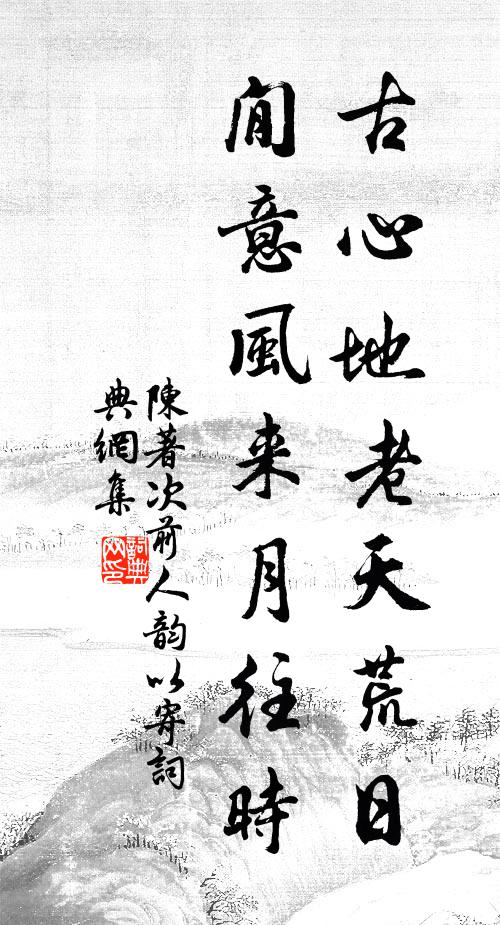 古心地老天荒日
閒意風来月往時
陳著次前人韵以寄詞
典網集
詞典
网印